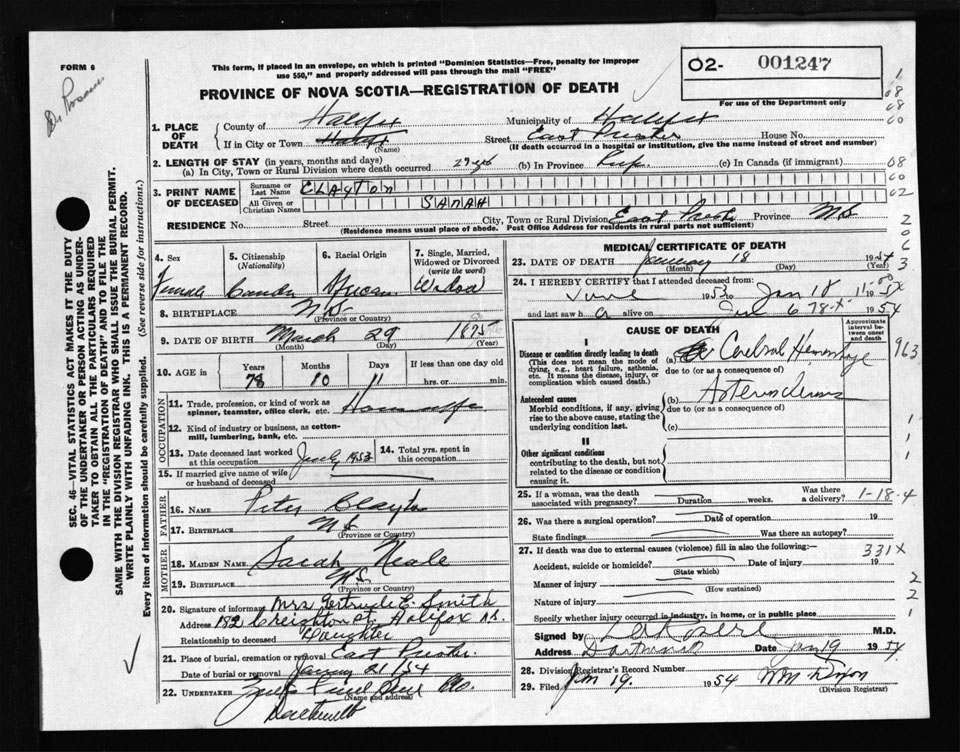 FORM 6
Dr
This form, if placed in an envelope, on which is printed "Dominion Statistics—Free, penalty for improper
use $50," and properly addressed will pass through the mail "FREE"
PROVINCE OF NOVA SCOTIA—REGISTRATION OF DEATH
O2- 001247
For use of the Department only
1. PLACE OF DEATH
County of Halifax Municipality of Halifax
If in City or Town Street East Preston House No.
(Name) (If death occurred in a hospital or institution, give the name instead of street and number)
2. LENGTH OF STAY (in years, months and days)
(a) In City, Town or Rural Division where death occurred (b) In Province (c) In Canada (if immigrant)
3. PRINT NAME OF DECEASED
Surname or Last Name CLAYTON
All Given or Christian Names SARAH
RESIDENCE No. Street City, Town or Rural Division East Preston Province N.S
(Residence means usual place of abode. Post Office Address for residents in rural parts not sufficient)
4. Sex Female
5. Citizenship (Nationality)
6. Racial Origin African
7. Single, Married, Widowed or Divorced (write the word)
8. BIRTHPLACE N.S
(Province or Country)
9. DATE OF BIRTH March 29 1875
(Month) (Day) (Year)
10. AGE in Years 78 Months 10 Days 11 If less than one day old hrs. or min.
OCCUPATION
11. Trade, profession, or kind of work as
spinner, teamster, office clerk, etc. Housewife
12. Kind of industry or business, as cotton-
mill, lumbering, bank, etc.
13. Date deceased last worked at this occupation 1953
14. Total yrs. spent in this occupation
15. If married give name of wife
or husband of deceased
FATHER
16. NAME Peter Clayton
17. BIRTHPLACE N.S
(Province or Country)
MOTHER
18. MAIDEN NAME Sarah Neale
19. BIRTHPLACE N.S.
(Province or Country)
20. Signature of informant Mrs Gertrude E. Smith
Address 182 Creighton St. Halifax N.S.
Relationship to deceased Daughter
21. Place of burial, cremation or removal East Preston
Date of burial or removal January 21/54
22. UNDERTAKER
(Name and address)
Dartmouth
MEDICAL CERTIFICATE OF DEATH
23. DATE OF DEATH January 18 1954
(Month) (Day) (Year)
24. I HEREBY CERTIFY that I attended deceased from:
June 1953 to Jan 18
and last saw h alive on 1954
CAUSE OF DEATH
Approximate interval between onset and death
I
Disease or condition directly leading to death
(This does not mean the mode of
dying, e.g., heart failure, asthenia,
etc. It means the disease, injury, or
complication which caused death.)
(a) Cerebral Hemorrhage
due to (or as a consequence of)
Antecedent causes
Morbid conditions, if any, giving
rise to the above cause, stating the
underlying condition last.
(b)
due to (or as a consequence of)
(c)
II
Other significant conditions
contributing to the death, but not
related to the disease or condition
causing it.
25. If a woman, was the death
associated with pregnancy? Duration weeks. Was there a delivery? 1-18-4
26. Was there a surgical operation? Date of operation 19
State findings Was there an autopsy?
27. If death was due to external causes (violence) fill in also the following:— 331X
Accident, suicide or homicide? Date of injury 19
(State which)
Manner of injury
(How sustained)
Nature of injury
Specify whether injury occurred in industry, in home, or in public place
Signed by M.D.
Address Dartmouth Date Jan 19 1954
28. Division Registrar's Record Number
29. Filed Jan 19. 1954 Wm Dixon
(Division Registrar)
SEC. 46—VITAL STATISTICS ACT MAKES IT THE DUTY
OF THE UNDERTAKER OR PERSON ACTING AS UNDER-
TAKER TO OBTAIN ALL THE PARTICULARS REQUIRED
IN THE "REGISTRATION OF DEATH" AND TO FILE THE
SAME WITH THE DIVISION REGISTRAR WHO SHALL ISSUE THE BURIAL PERMIT.
WRITE PLAINLY WITH UNFADING INK. THIS IS A PERMANENT RECORD.
Every item of information should be carefully supplied. (See reverse side for instructions.)
963